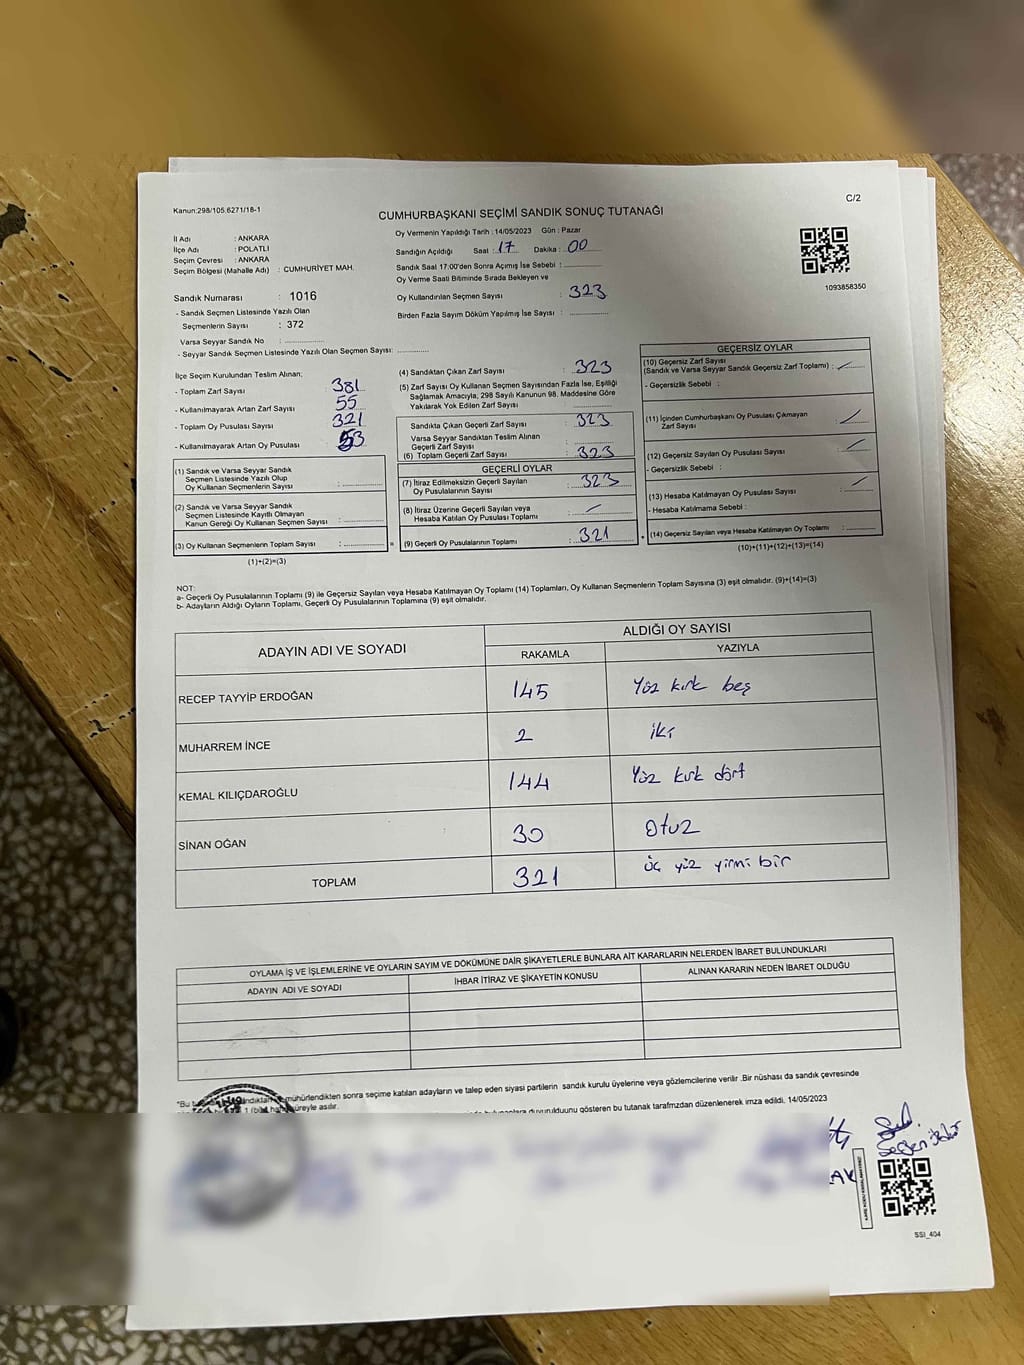 Kanun:298/105.6271/18-1
C/2
CUMHURBAŞKANI SEÇİMİ SANDIK SONUÇ TUTANAĞI
İl Adı : ANKARA
İlçe Adı : POLATLI
Seçim Çevresi : ANKARA
Seçim Bölgesi (Mahalle Adı) : CUMHURİYET MAH.
Sandık Numarası : 1016
- Sandık Seçmen Listesinde Yazılı Olan
Seçmenlerin Sayısı : 372
Varsa Seyyar Sandık No :
- Seyyar Sandık Seçmen Listesinde Yazılı Olan Seçmen Sayısı:
Oy Vermenin Yapıldığı Tarih : 14/05/2023 Gün : Pazar
Sandığın Açıldığı Saat : 17 Dakika : 00
Sandık Saat 17.00'den Sonra Açmış İse Sebebi :
Oy Verme Saati Bitiminde Sırada Bekleyen ve
Oy Kullandırılan Seçmen Sayısı : 323
Birden Fazla Sayım Döküm Yapılmış İse Sayısı :
1093858350
İlçe Seçim Kurulundan Teslim Alınan;
- Toplam Zarf Sayısı 381
- Kullanılmayarak Artan Zarf Sayısı 55
- Toplam Oy Pusulası Sayısı 321
- Kullanılmayarak Artan Oy Pusulası 53
(1) Sandık ve Varsa Seyyar Sandık
Seçmen Listesinde Yazılı Olup
Oy Kullanan Seçmenlerin Sayısı :
(2) Sandık ve Varsa Seyyar Sandık
Seçmen Listesinde Kayıtlı Olmayan
Kanun Gereği Oy Kullanan Seçmen Sayısı :
(3) Oy Kullanan Seçmenlerin Toplam Sayısı :
(1)+(2)=(3)
(4) Sandıktan Çıkan Zarf Sayısı : 323
(5) Zarf Sayısı Oy Kullanan Seçmen Sayısından Fazla İse, Eşitliği
Sağlamak Amacıyla; 298 Sayılı Kanunun 98. Maddesine Göre
Yakılarak Yok Edilen Zarf Sayısı
Sandıkta Çıkan Geçerli Zarf Sayısı : 323
Varsa Seyyar Sandıktan Teslim Alınan
Geçerli Zarf Sayısı
(6) Toplam Geçerli Zarf Sayısı : 323
GEÇERLİ OYLAR
(7) İtiraz Edilmeksizin Geçerli Sayılan
Oy Pusulalarının Sayısı : 323
(8) İtiraz Üzerine Geçerli Sayılan veya
Hesaba Katılan Oy Pusulası Toplamı :
(9) Geçerli Oy Pusulalarının Toplamı : 321
GEÇERSİZ OYLAR
(10) Geçersiz Zarf Sayısı
(Sandık ve Varsa Seyyar Sandık Geçersiz Zarf Toplamı) :
- Geçersizlik Sebebi :
(11) İçinden Cumhurbaşkanı Oy Pusulası Çıkmayan
Zarf Sayısı
(12) Geçersiz Sayılan Oy Pusulası Sayısı
- Geçersizlik Sebebi :
(13) Hesaba Katılmayan Oy Pusulası Sayısı
- Hesaba Katılmama Sebebi :
(14) Geçersiz Sayılan veya Hesaba Katılmayan Oy Toplamı :
(10)+(11)+(12)+(13)=(14)
NOT:
a- Geçerli Oy Pusulalarının Toplamı (9) ile Geçersiz Sayılan veya Hesaba Katılmayan Oy Toplamı (14) Toplamları, Oy Kullanan Seçmenlerin Toplam Sayısına (3) eşit olmalıdır. (9)+(14)=(3)
b- Adayların Aldığı Oyların Toplamı, Geçerli Oy Pusulalarının Toplamına (9) eşit olmalıdır.
ADAYIN ADI VE SOYADI
ALDIĞI OY SAYISI
RAKAMLA YAZIYLA
RECEP TAYYİP ERDOĞAN 145 Yüz kırk beş
MUHARREM İNCE 2 iki
KEMAL KILIÇDAROĞLU 144 Yüz kırk dört
SİNAN OĞAN 30 Otuz
TOPLAM 321 üç yüz yirmi bir
OYLAMA İŞ VE İŞLEMLERİNE VE OYLARIN SAYIM VE DÖKÜMÜNE DAİR ŞİKAYETLERLE BUNLARA AİT KARARLARIN NELERDEN İBARET BULUNDUKLARI
ADAYIN ADI VE SOYADI
İHBAR İTİRAZ VE ŞİKAYETİN KONUSU
ALINAN KARARIN NEDEN İBARET OLDUĞU
mühürlendikten sonra seçime katılan adayların ve talep eden siyasi partilerin sandık kurulu üyelerine veya gözlemcilerine verilir .Bir nüshası da sandık çevresinde
süreyle asılır.
duyurulduğunu gösteren bu tutanak tarafımızdan düzenlenerek imza edildi. 14/05/2023
SSİ_404